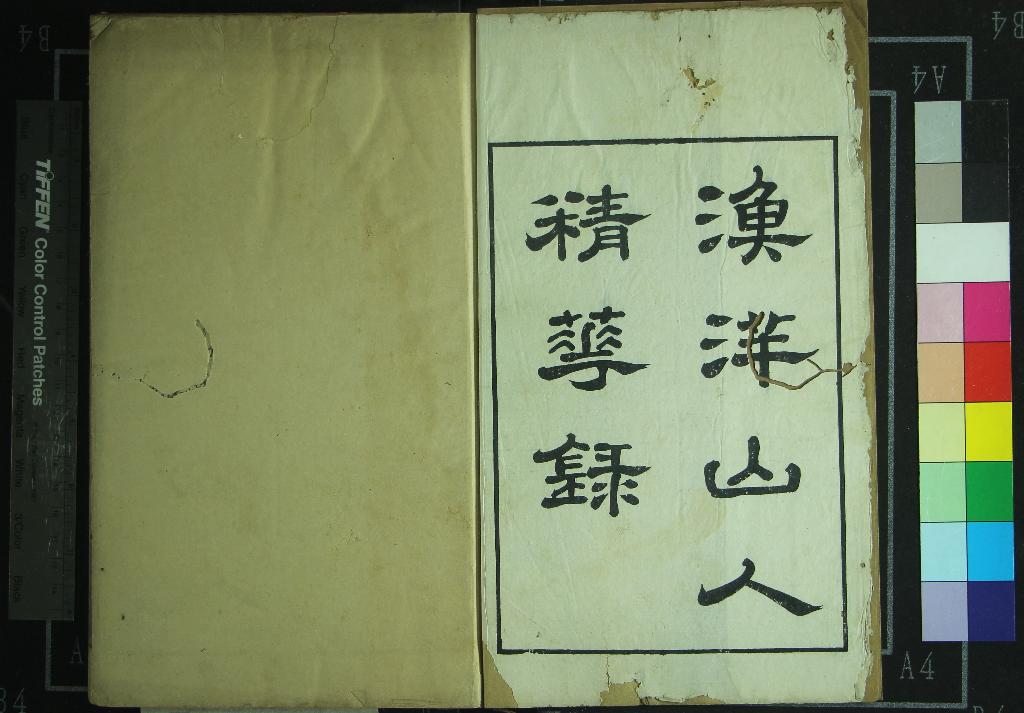 漁洋山人
精華錄
TIFFEN Color Control Patches
Blue Cyan Green Yellow Red Magenta White 3/Color Black
B4
B4
A4
A4
A4
B4